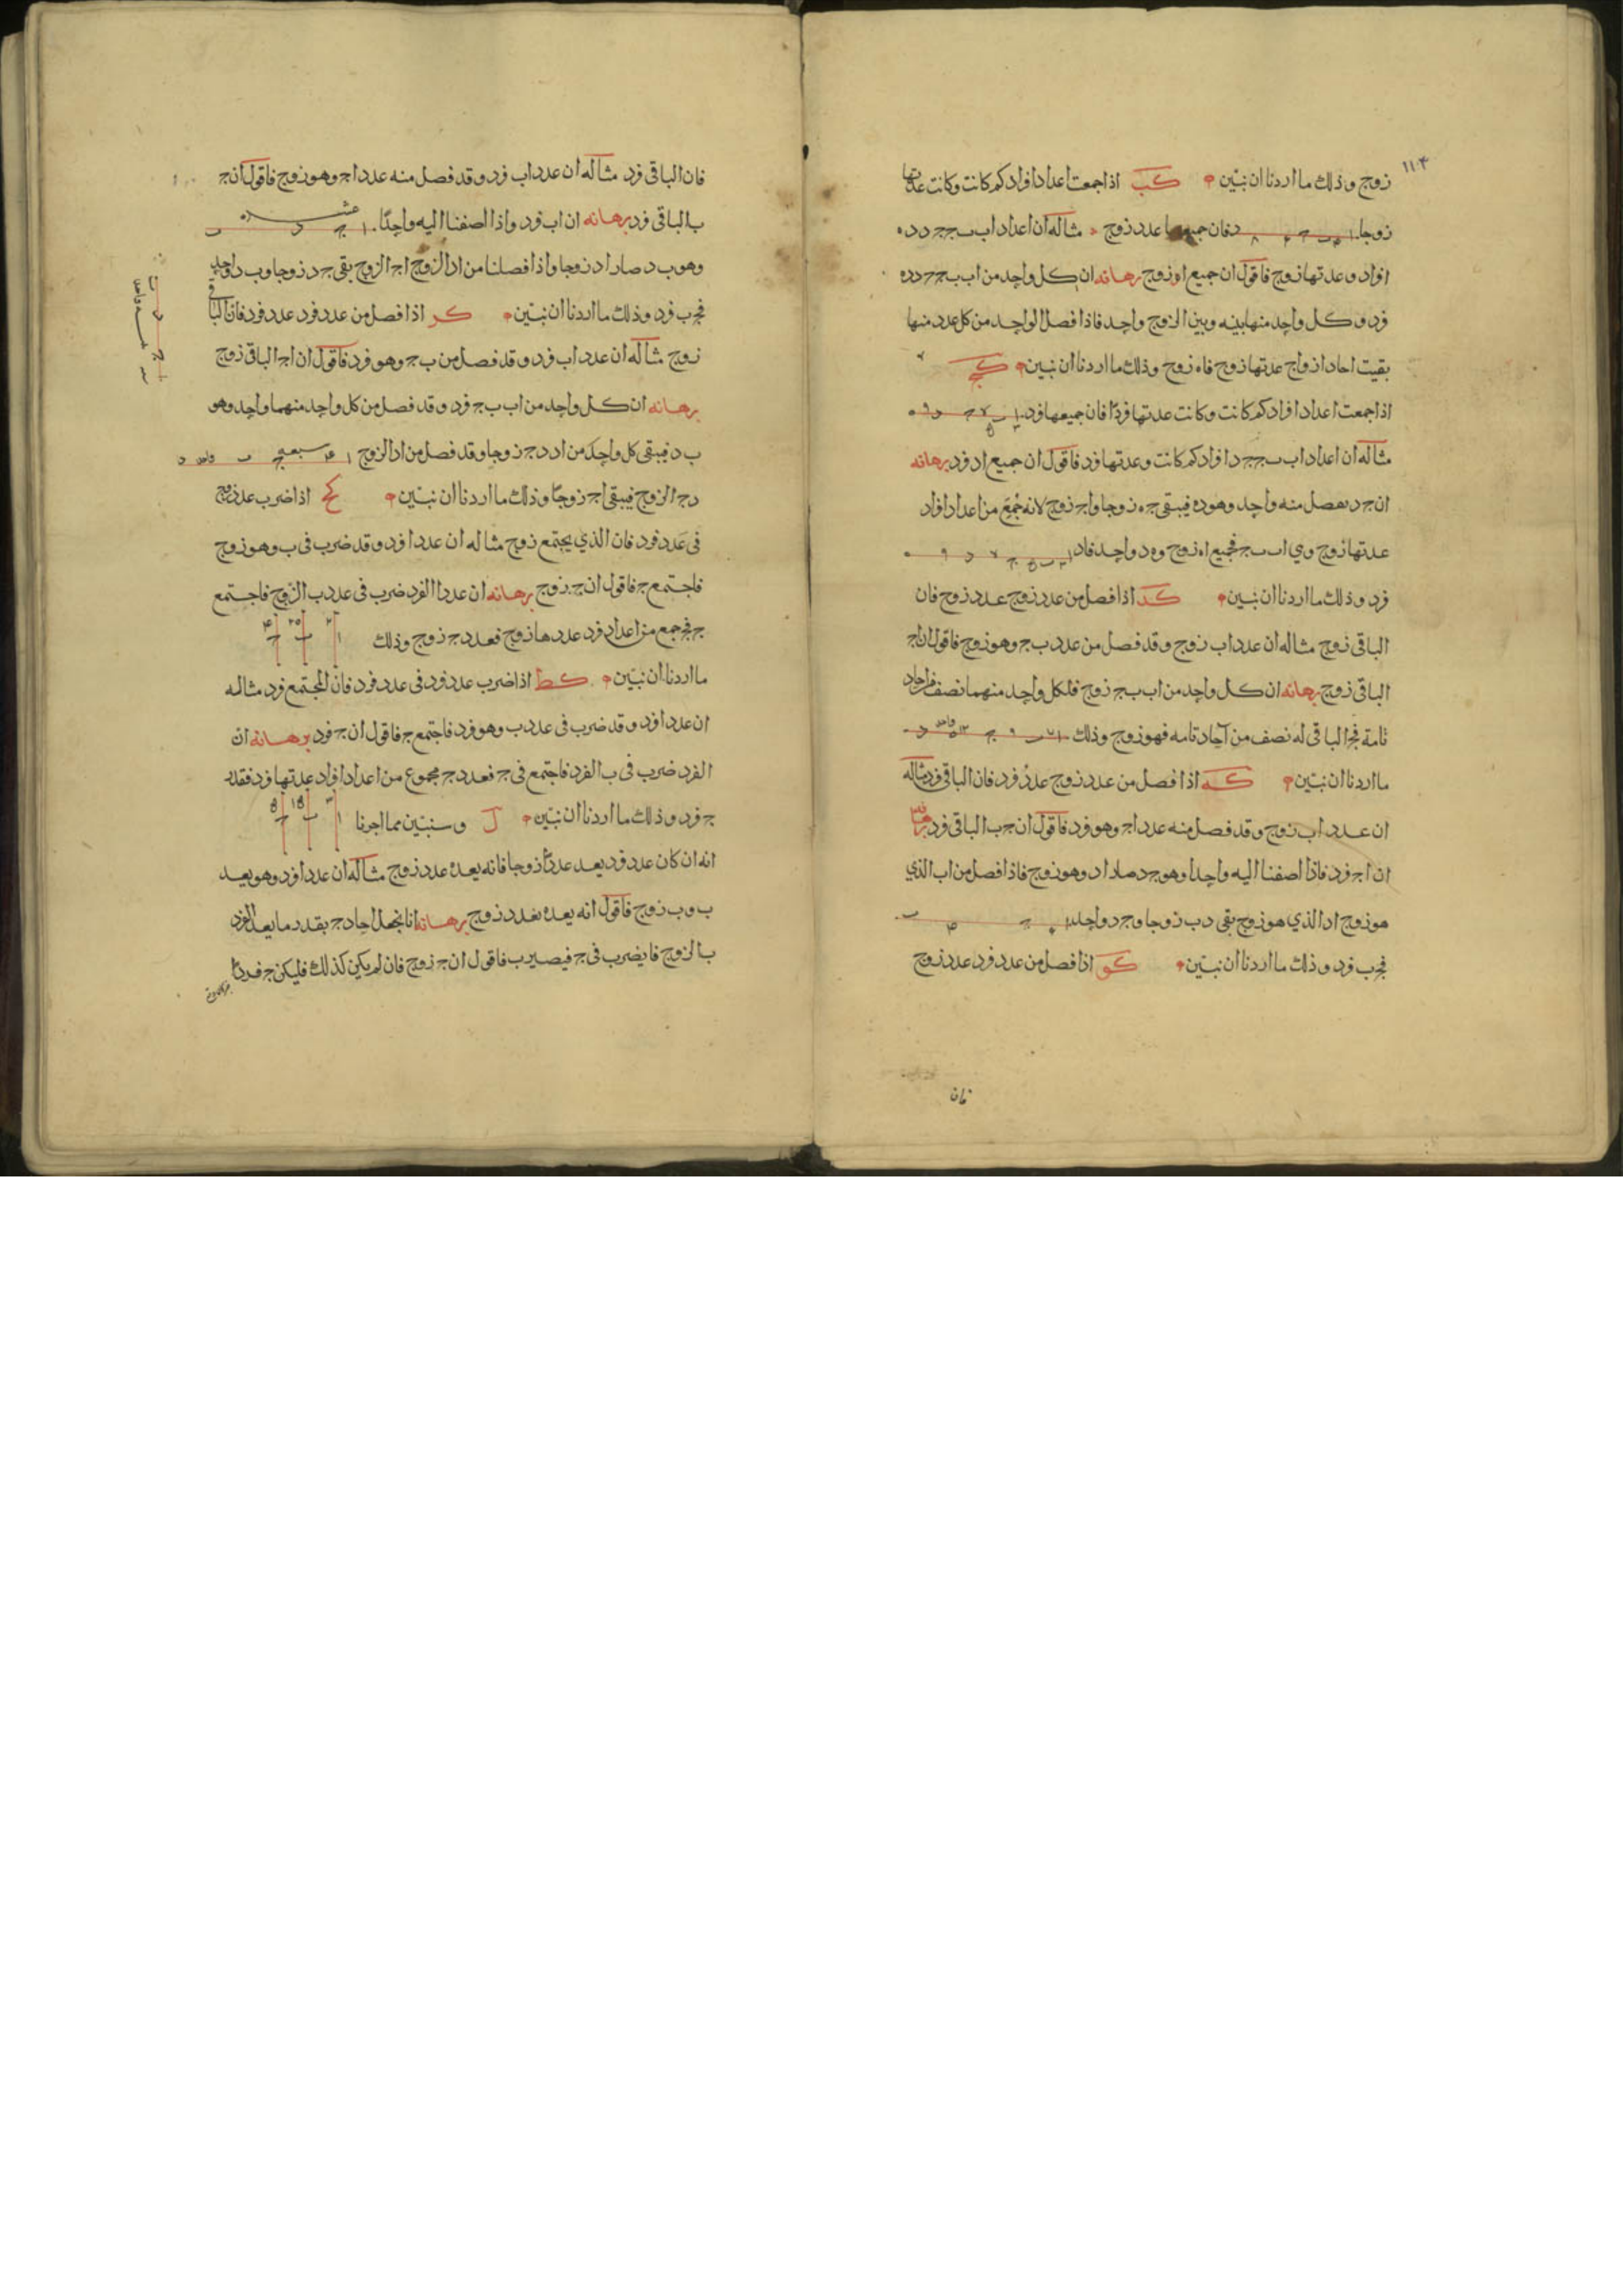 ١١٣
زوج وذلك ما اردنا ان نبين كب اذا جمعت اعداد افراد كم كانت وكانت عدتها
زوجا فان جميعها عدد زوج مثاله ان اعداد اب ب ج ج د د ه
افراد وعدتها زوج فاقول ان جميع اه زوج برهانه ان كل واحد من اب ب ج ج د د ه
فرد وكل واحد منها بينه وبين الزوج واحد فاذا فصل الواحد من كل عدد منها
بقيت احاد ازواج عدتها زوج فاه زوج وذلك ما اردنا ان نبين كج
اذا جمعت اعداد افراد كم كانت وكانت عدتها فردا فان جميعها فرد
مثاله ان اعداد اب ب ج ج د افراد كم كانت وعدتها فرد فاقول ان جميع اد فرد برهانه
ان ج د يفصل منه واحد وهو ده فيبقى ج ه زوجا واج زوج لانه جمع من اعداد افراد
عدتها زوج وهي اب ب ج فجميع اه زوج وه د واحد فاد
فرد وذلك ما اردنا ان نبين كد اذا فصل من عدد زوج عدد زوج فان
الباقي زوج مثاله ان عدد اب زوج وقد فصل من عدد ب ج وهو زوج فاقول ان اج
الباقي زوج برهانه ان كل واحد من اب ب ج زوج فلكل واحد منهما نصف من احاد
تامة فج الباقي له نصف من آحاد تامه فهو زوج وذلك
ما اردنا ان نبين كه اذا فصل من عدد زوج عدد فرد فان الباقي فرد مثاله
ان عدد اب زوج وقد فصل منه عدد اج وهو فرد فاقول ان ج ب الباقي فرد برهانه
ان اج فرد فاذا اضفنا اليه واحدا وهو ج د صار اد وهو زوج فاذا فصل من اب الذي
هو زوج اد الذي هو زوج بقى د ب زوجا وج د واحد
فج ب فرد وذلك ما اردنا ان نبين كو اذا فصل من عدد فرد عدد زوج
فان
فان الباقي فرد مثاله ان عدد اب فرد وقد فصل منه عدد اج وهو زوج فاقول ان ج
ب الباقي فرد برهانه ان اب فرد واذا اضفنا اليه واحدا
وهو ب د صار اد زوجا واذا فصلنا من اد الزوج اج الزوج بقى ج د زوجا وب د واحد
فج ب فرد وذلك ما اردنا ان نبين كز اذا فصل من عدد فرد عدد فرد فان الباقي
زوج مثاله ان عدد اب فرد وقد فصل من ب ج وهو فرد فاقول ان اج الباقي زوج
برهانه ان كل واحد من اب ب ج فرد وقد فصل من كل واحد منهما واحد وهو
ب د فيبقى كل واحد من اد د ج زوجا وقد فصل من اد الزوج
د ج الزوج فيبقى اج زوجا وذلك ما اردنا ان نبين كح اذا ضرب عدد زوج
في عدد فرد فان الذي يجتمع زوج مثاله ان عدد ا فرد وقد ضرب في ب وهو زوج
فاجتمع ج فاقول ان ج زوج برهانه ان عدد ا الفرد ضرب في عدد ب الزوج فاجتمع
ج فج جمع من اعداد فرد عددها زوج فعدد ج زوج وذلك
ما اردنا ان نبين كط اذا ضرب عدد فرد في عدد فرد فان المجتمع فرد مثاله
ان عدد ا فرد وقد ضرب في عدد ب وهو فرد فاجتمع ج فاقول ان ج فرد برهانه ان
الفرد ضرب في ب الفرد فاجتمع في ج فعدد ج مجموع من اعداد افراد عدتها فرد فعدد
ج فرد وذلك ما اردنا ان نبين ل وسنبين مما اجرنا
انه ان كان عدد فرد يعد عددا زوجا فانه يعده عدد زوج مثاله ان عدد ا فرد وهو يعد
ب وب زوج فاقول انه يعده بعدد زوج برهانه انا نجعل احاد ج بقدر ما يعد ا الفرد
ب الزوج فا يضرب في ج فيصير ب فاقول ان ج زوج فان لم يكن كذلك فليكن ج فردا